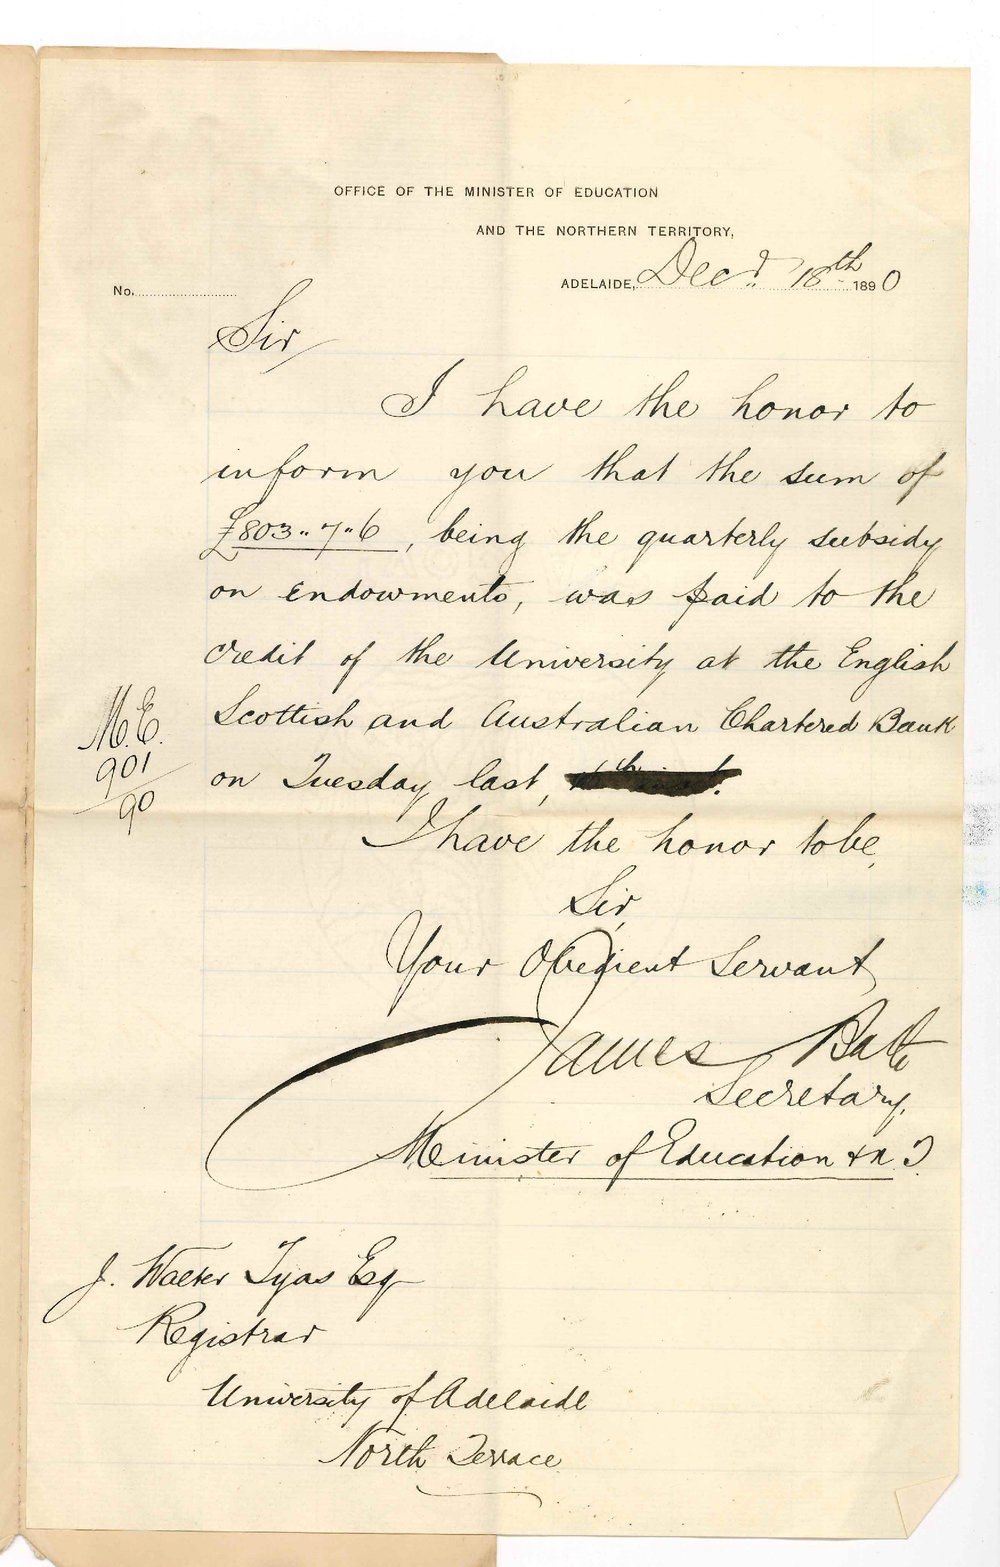 OFFICE OF THE MINISTER OF EDUCATION
AND THE NORTHERN TERRITORY,
ADELAIDE, Decr. 18th 1890
No.
Sir
I have the honor to
inform you that the sum of
£803„7„6, being the quarterly subsidy
on endowments, was paid to the
credit of the University at the English
Scottish and Australian Chartered Bank
M.E.
901
90
on Tuesday last,
I have the honor to be,
Sir,
Your Obedient Servant,
James Bath
Secretary,
Minister of Education & N.T.
J. Walter Tyas Esq
Registrar
University of Adelaide
North Terrace